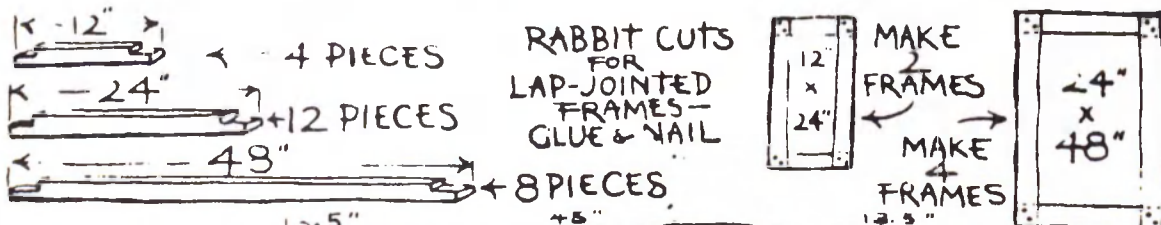 12"
4 PIECES
24"
12 PIECES
48"
8 PIECES
RABBIT CUTS
FOR
LAP-JOINTED
FRAMES—
GLUE & NAIL
12"
x
24"
MAKE
2
FRAMES
MAKE
4
FRAMES
24"
x
48"
48"
13.5"